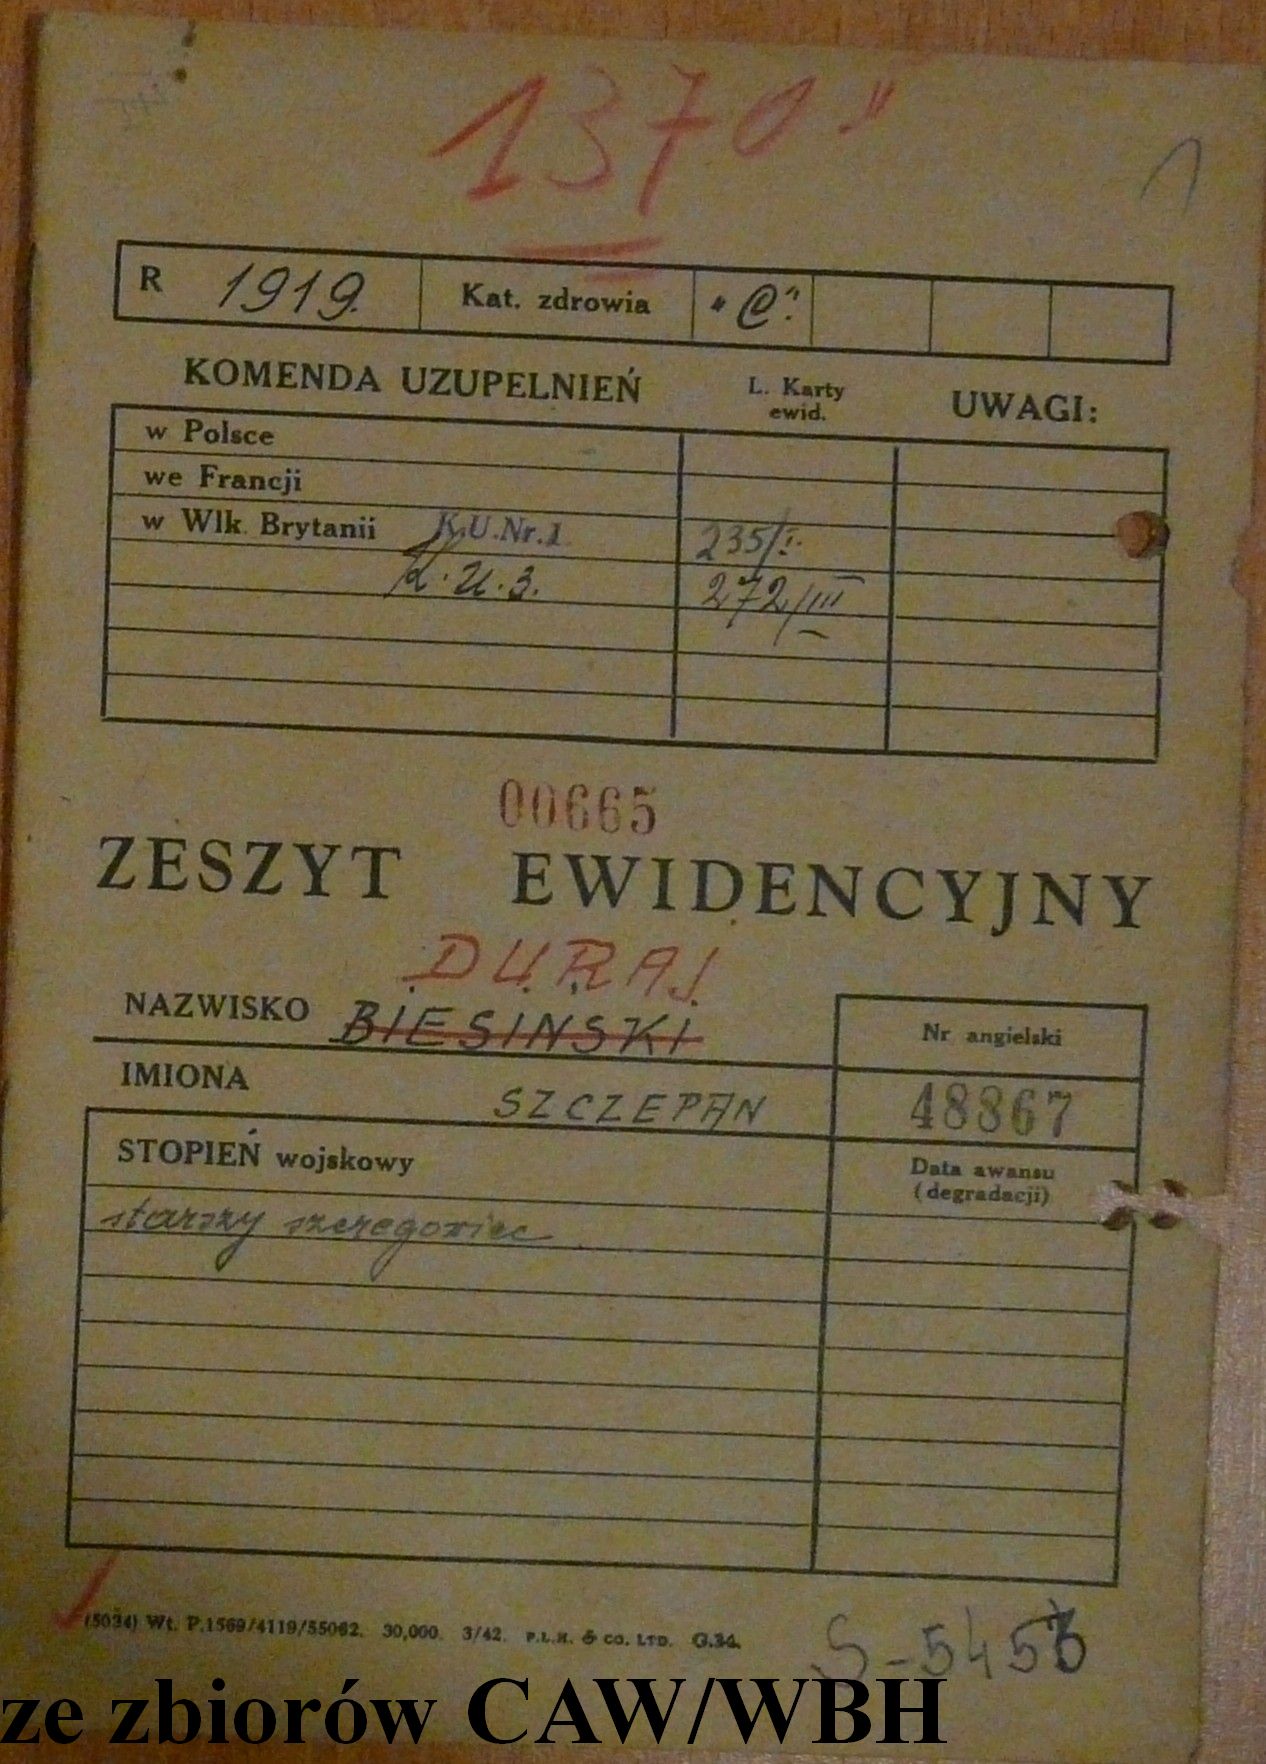 1370"
1
R 1919. Kat. zdrowia "C"
KOMENDA UZUPELNIEŃ L. Karty ewid. UWAGI:
w Polsce
we Francji
w Wlk. Brytanii K.U.Nr.1 235/I.
K.U.3. 272/III
00665
ZESZYT EWIDENCYJNY
DURAJ
NAZWISKO BIESINSKI Nr angielski
IMIONA SZCZEPAN 48867
STOPIEŃ wojskowy Data awansu (degradacji)
starszy szeregowiec
(5034) Wt. P.1569/4119/55062. 30,000. 3/42. P.L.H. & CO. LTD. G.34.
S-545
ze zbiorów CAW/WBH